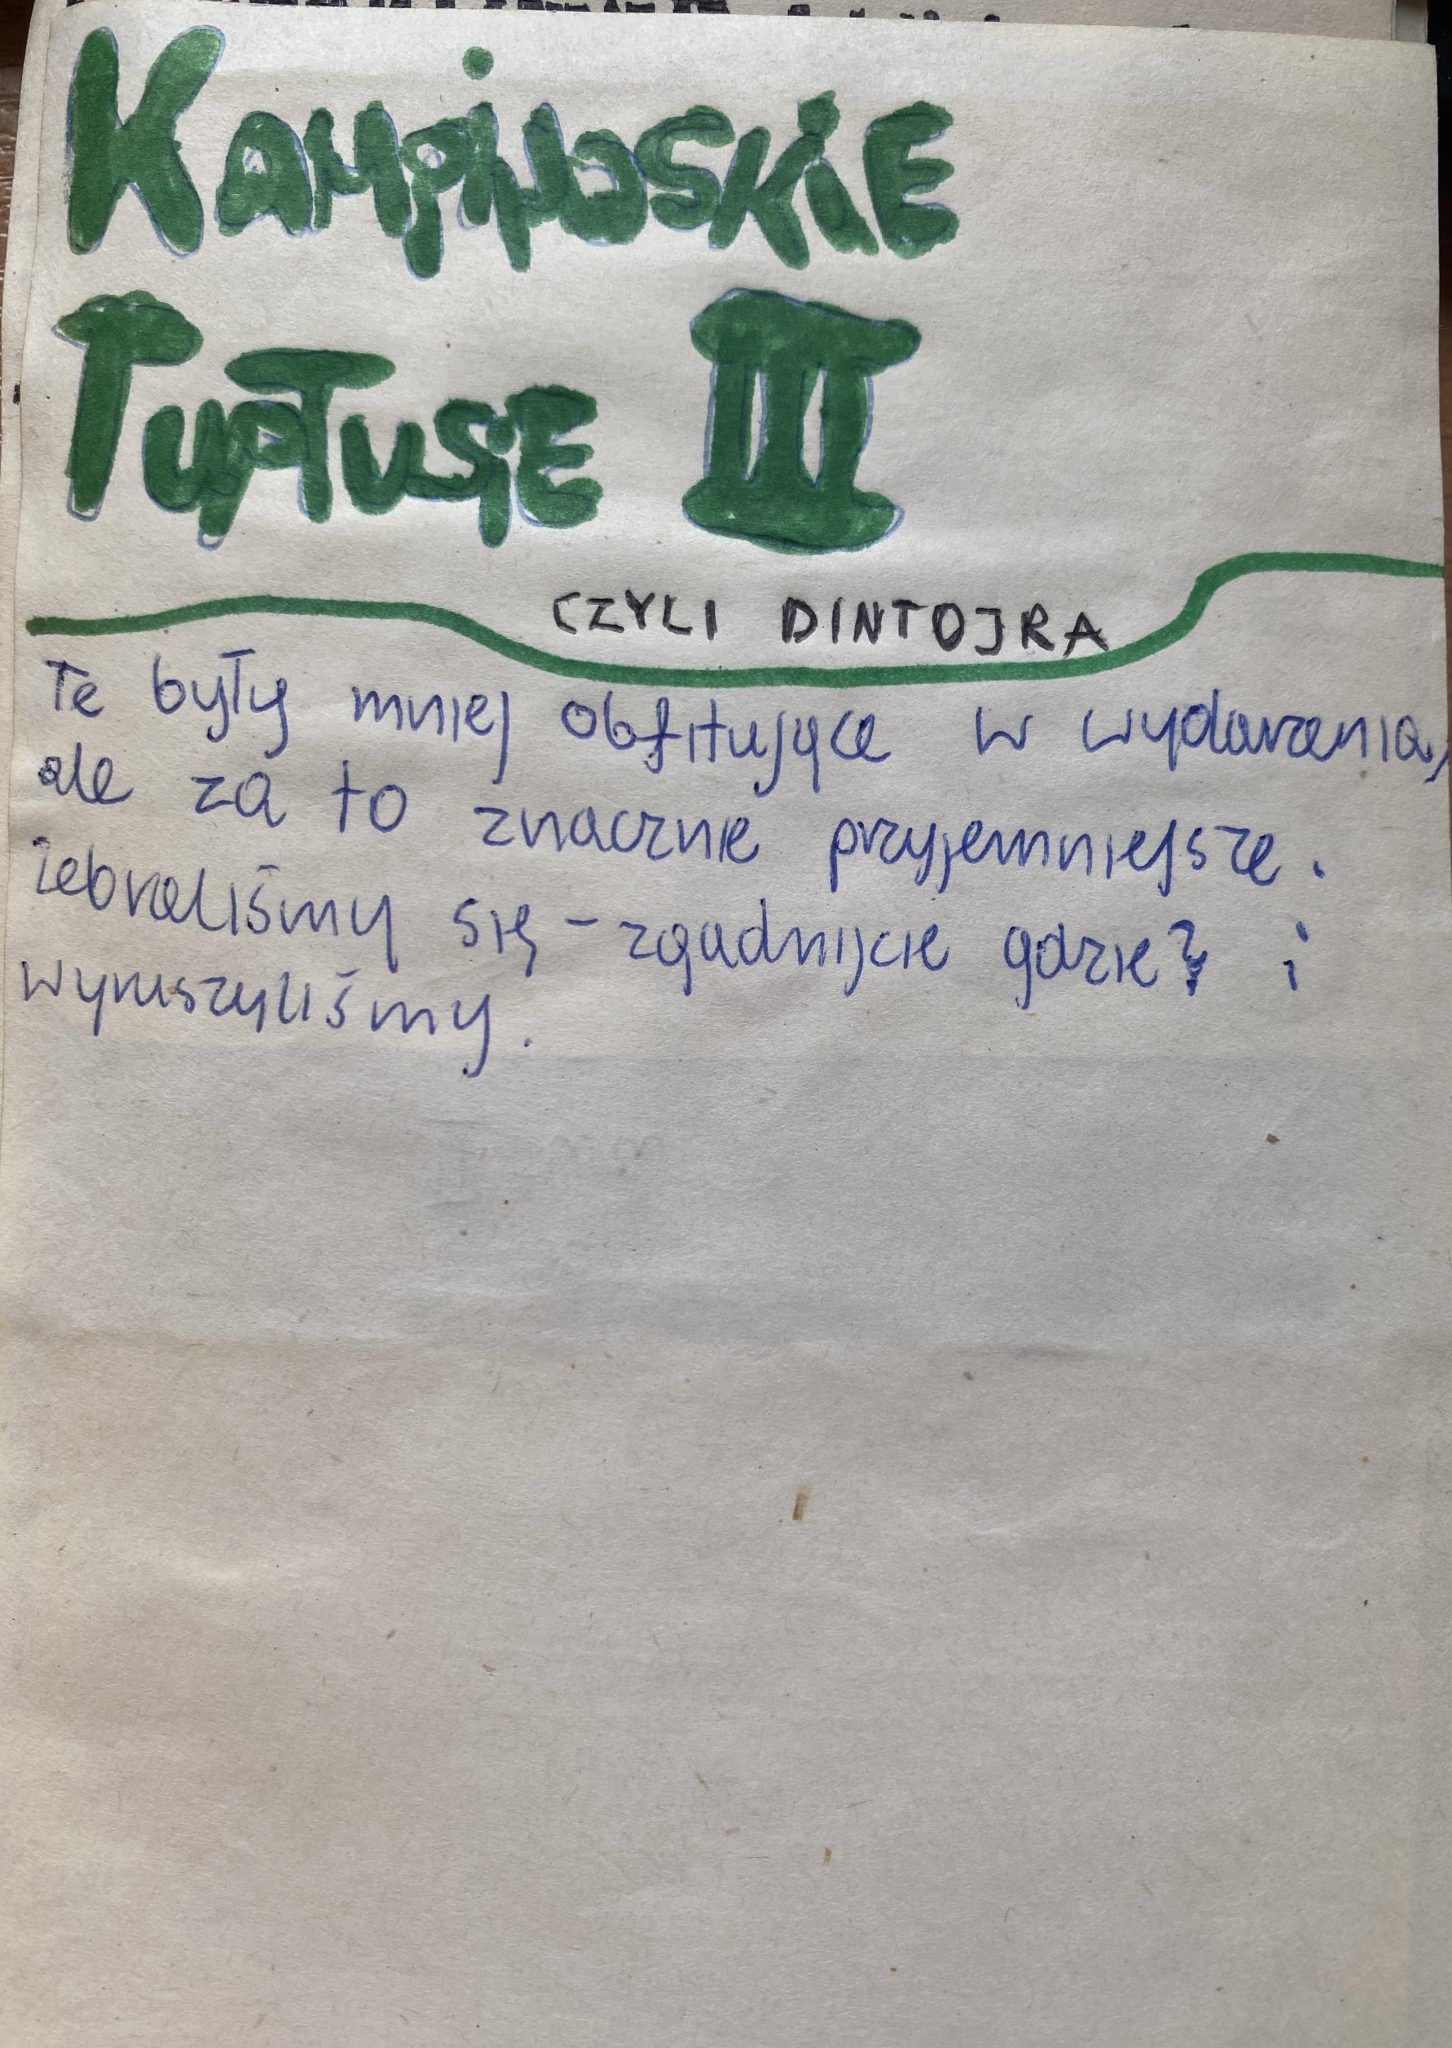 Kampinoskie
Tuptusie III
CZYLI DINTOJRA
Te były mniej obfitujące w wydarzenia,
ale za to znacznie przyjemniejsze.
Zebraliśmy się - zgadnijcie gdzie? i
wyruszyliśmy.